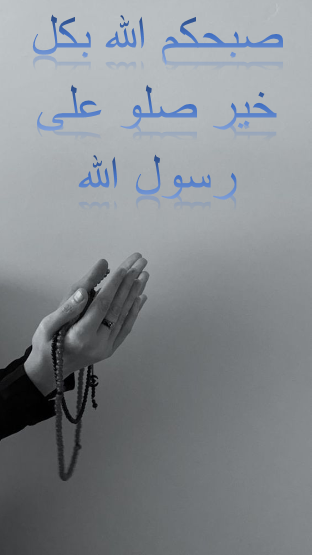 صبحكم الله بكل
خير صلو على
رسول الله